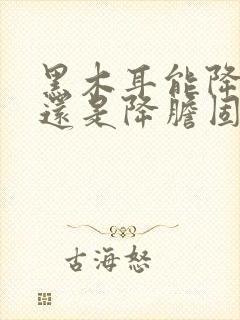 黑木耳能降
還是降膽固
古海怒